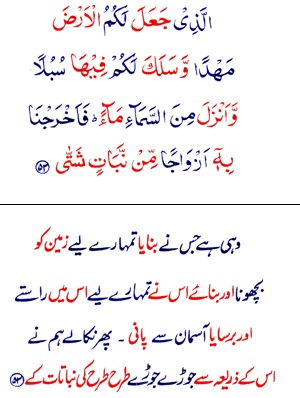 الَّذِىْ جَعَلَ لَكُمُ الْاَرْضَ
مَهْدًا وَّسَلَكَ لَكُمْ فِيْهَا سُبُلًا
وَّاَنْزَلَ مِنَ السَّمَآءِ مَآءًؕ فَاَخْرَجْنَا
بِهٖۤ اَزْوَاجًا مِّنْ نَّبَاتٍ شَتّٰى ﴿۵۳﴾
وہی ہے جس نے بنایا تمہارے لیے زمین کو
بچھونا اور بنائے اس نے تمہارے لیے اس میں راستے
اور برسایا آسمان سے پانی ۔ پھر نکالے ہم نے
اس کے ذریعہ سے جوڑے جوڑے طرح طرح کی نباتات کے ﴿۵۳﴾